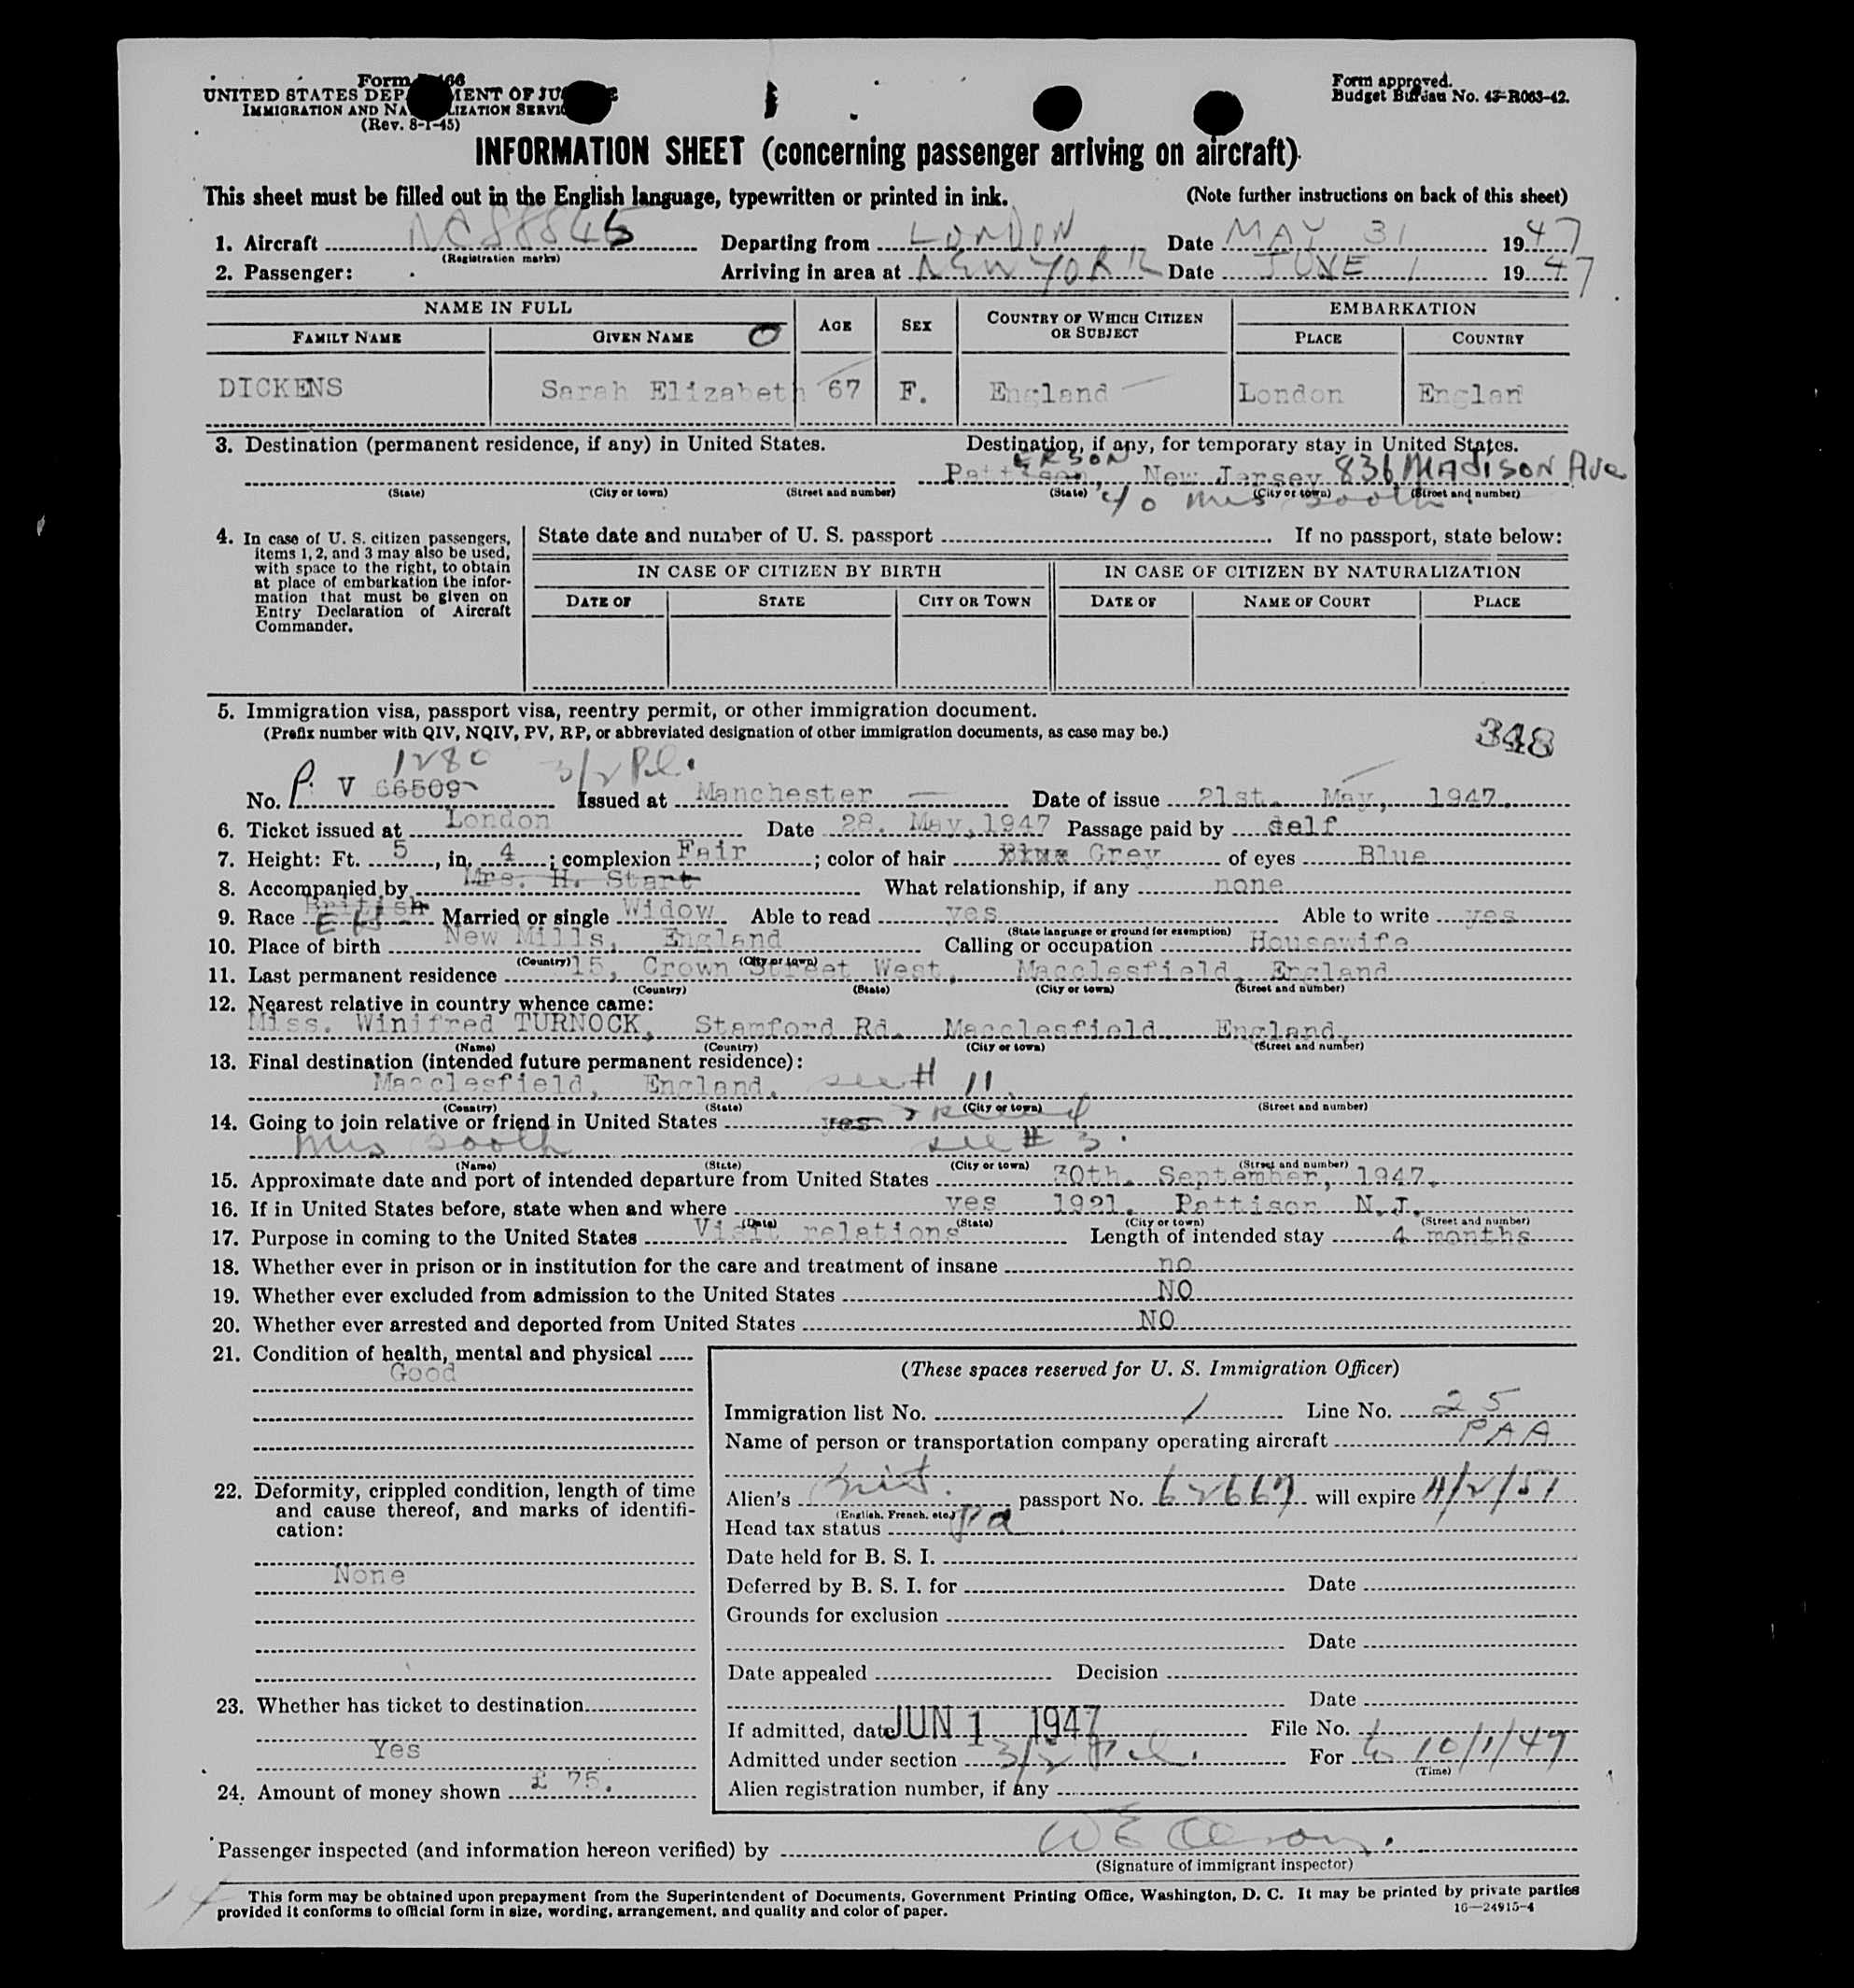 Form I-466
UNITED STATES DEPARTMENT OF JUSTICE
IMMIGRATION AND NATURALIZATION SERVICE
(Rev. 8-1-45)
Form approved.
Budget Bureau No. 43-R063-42.
INFORMATION SHEET (concerning passenger arriving on aircraft)
This sheet must be filled out in the English language, typewritten or printed in ink. (Note further instructions on back of this sheet)
1. Aircraft NC88846 Departing from LONDON Date MAY 31 1947
(Registration marks)
2. Passenger: Arriving in area at NEW YORK Date JUNE 1 1947
NAME IN FULL AGE SEX COUNTRY OF WHICH CITIZEN OR SUBJECT EMBARKATION
FAMILY NAME GIVEN NAME PLACE COUNTRY
DICKENS Sarah Elizabeth 67 F. England London Englan
3. Destination (permanent residence, if any) in United States. Destination, if any, for temporary stay in United States.
ERSON
Pattison, New Jersey 836 MADISON Ave
(State) (City or town) (Street and number) (State) (City or town) (Street and number)
c/o Mrs Booth
4. In case of U. S. citizen passengers, items 1, 2, and 3 may also be used, with space to the right, to obtain at place of embarkation the information that must be given on Entry Declaration of Aircraft Commander.
State date and number of U. S. passport If no passport, state below:
IN CASE OF CITIZEN BY BIRTH IN CASE OF CITIZEN BY NATURALIZATION
DATE OF STATE CITY OR TOWN DATE OF NAME OF COURT PLACE
5. Immigration visa, passport visa, reentry permit, or other immigration document.
(Prefix number with QIV, NQIV, PV, RP, or abbreviated designation of other immigration documents, as case may be.)
348
1280 3/2 Pl.
No. P. V 66509 Issued at Manchester Date of issue 21st. May, 1947.
6. Ticket issued at London Date 28. May, 1947 Passage paid by self
7. Height: Ft. 5, in. 4; complexion Fair; color of hair Blue Grey of eyes Blue
8. Accompanied by Mrs. H. Start What relationship, if any none
9. Race British EH Married or single Widow Able to read yes Able to write yes
(State language or ground for exemption)
10. Place of birth New Mills, England Calling or occupation Housewife
(Country) (City or town)
11. Last permanent residence 15, Crown Street West, Macclesfield, England
(Country) (State) (City or town) (Street and number)
12. Nearest relative in country whence came:
Miss. Winifred TURNOCK, Stamford Rd. Macclesfield England
(Name) (Country) (City or town) (Street and number)
13. Final destination (intended future permanent residence):
Macclesfield, England. see # 11.
(Country) (State) (City or town) (Street and number)
14. Going to join relative or friend in United States yes friend
Mrs Booth see # 3.
(Name) (State) (City or town) (Street and number)
15. Approximate date and port of intended departure from United States 30th. September, 1947.
16. If in United States before, state when and where yes 1921. Pattison N.J.
(Date) (State) (City or town) (Street and number)
17. Purpose in coming to the United States Visit relations Length of intended stay 4 months
18. Whether ever in prison or in institution for the care and treatment of insane no
19. Whether ever excluded from admission to the United States NO
20. Whether ever arrested and deported from United States NO
21. Condition of health, mental and physical
Good
22. Deformity, crippled condition, length of time and cause thereof, and marks of identification:
None
23. Whether has ticket to destination
Yes
24. Amount of money shown £ 75.
(These spaces reserved for U. S. Immigration Officer)
Immigration list No. 1 Line No. 25
Name of person or transportation company operating aircraft PAA
Alien's Brit. passport No. 62667 will expire 4/2/51
(English, French, etc.)
Head tax status Pd
Date held for B. S. I.
Deferred by B. S. I. for Date
Grounds for exclusion
Date
Date appealed Decision
Date
If admitted, date JUN 1 1947 File No.
Admitted under section 3/2 Pl. For to 10/1/47
(Time)
Alien registration number, if any
Passenger inspected (and information hereon verified) by
(Signature of immigrant inspector)
This form may be obtained upon prepayment from the Superintendent of Documents, Government Printing Office, Washington, D. C. It may be printed by private parties
provided it conforms to official form in size, wording, arrangement, and quality and color of paper.
16—24915-4